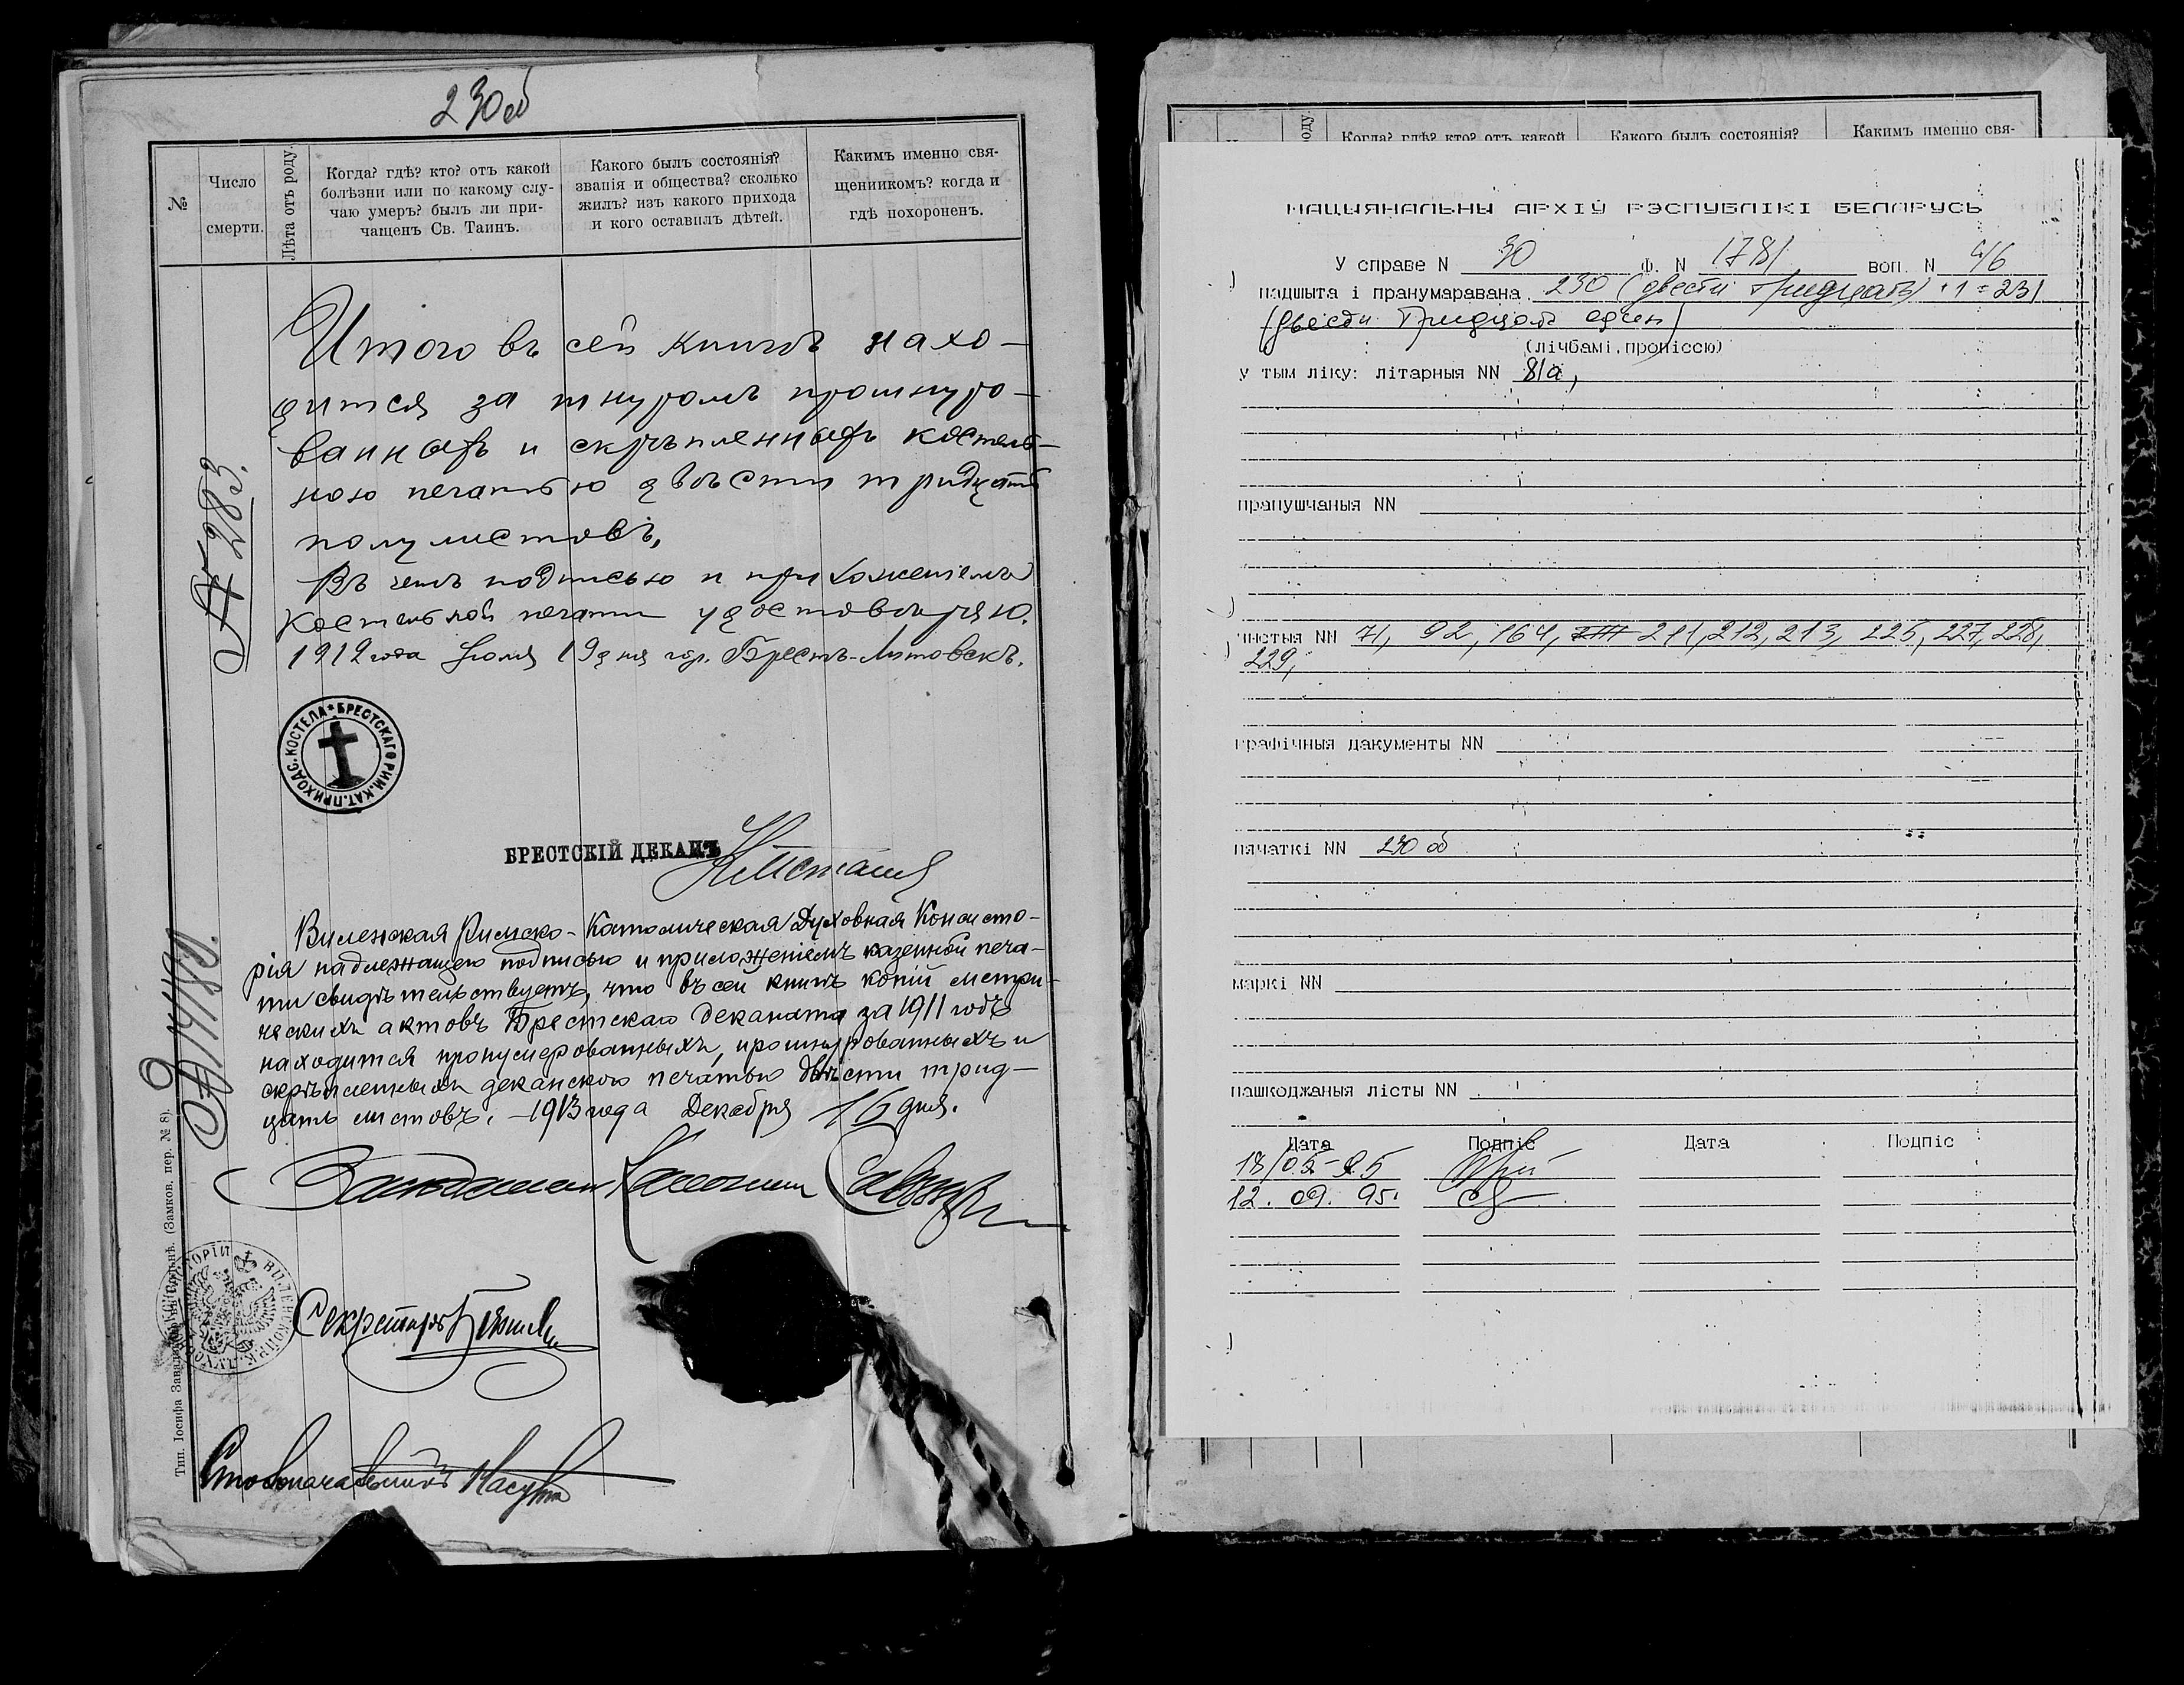 230 об
№
Число
смерти.
Лѣта отъ роду.
Когда? гдѣ? кто? отъ какой
болѣзни или по какому слу-
чаю умеръ? былъ ли при-
чащенъ Св. Таинъ.
Какого былъ состоянія?
званія и общества? сколько
жилъ? изъ какого прихода
и кого оставилъ дѣтей.
Какимъ именно свя-
щенникомъ? когда и
гдѣ похороненъ.
Итого въ сей книгѣ нахо-
дится за шнуромъ прошнуро-
ванныхъ и скрѣпленныхъ костель-
ною печатью двѣсти тридцать
полулистовъ,
Въ чемъ подписью и приложеніемъ
Костельной печати удостовѣряю.
1912 года Іюля 19 дня гор. Брестъ-Литовскъ.
№ 283.
БРЕСТСКАГО РИМ. КАТ. ПРИХОДС. КОСТЕЛА
БРЕСТСКІЙ ДЕКАНЪ
Виленская Римско-Католическая Духовная Консисто-
рія надлежащею подписью и приложеніемъ казенной печа-
ти свидѣтельствуетъ, что въ сей книгѣ копій метри-
ческихъ актовъ Брестскаго деканата за 1911 годъ
находится пронумерованныхъ, прошнурованныхъ и
скрѣпленныхъ деканскою печатью двѣсти трид-
цать листовъ. -1913 года Декабря 16 дня.
Засѣдатель Каноникъ
Секретарь
Столоначальникъ
Тип. Іосифа Завадзкаго въ Вильнѣ. (Замков. пер. № 8).
Когда? гдѣ? кто? отъ какой
Какого былъ состоянія?
Какимъ именно свя-
НАЦЫЯНАЛЬНЫ АРХІЎ РЭСПУБЛІКІ БЕЛАРУСЬ
У справе N 30 Ф. N 1781 воп. N 46
падшыта і пранумаравана 230 (двести тридцать) +1=231
(двести тридцать один)
(лічбамі, пропіссю)
у тым ліку: літарныя NN 81а,
прапушчаныя NN
чыстыя NN 71, 92, 164, 211, 212, 213, 225, 227, 228,
229,
графічныя дакументы NN
пячаткі NN 230 об
маркі NN
пашкоджаныя лісты NN
Дата Подпіс Дата Подпіс
18/05-95
12. 09. 95.